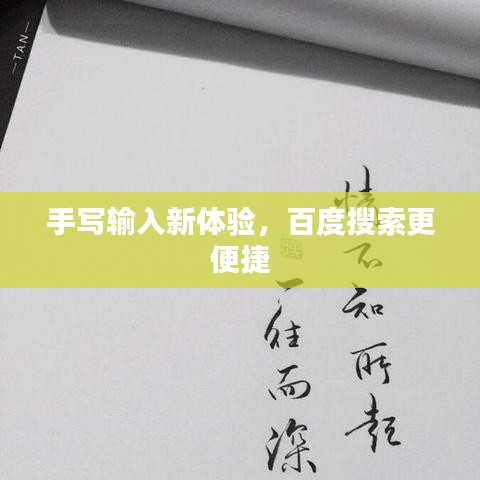 —TAN—
手写输入新体验，百度搜索更
便捷
情不知所起
一往而深